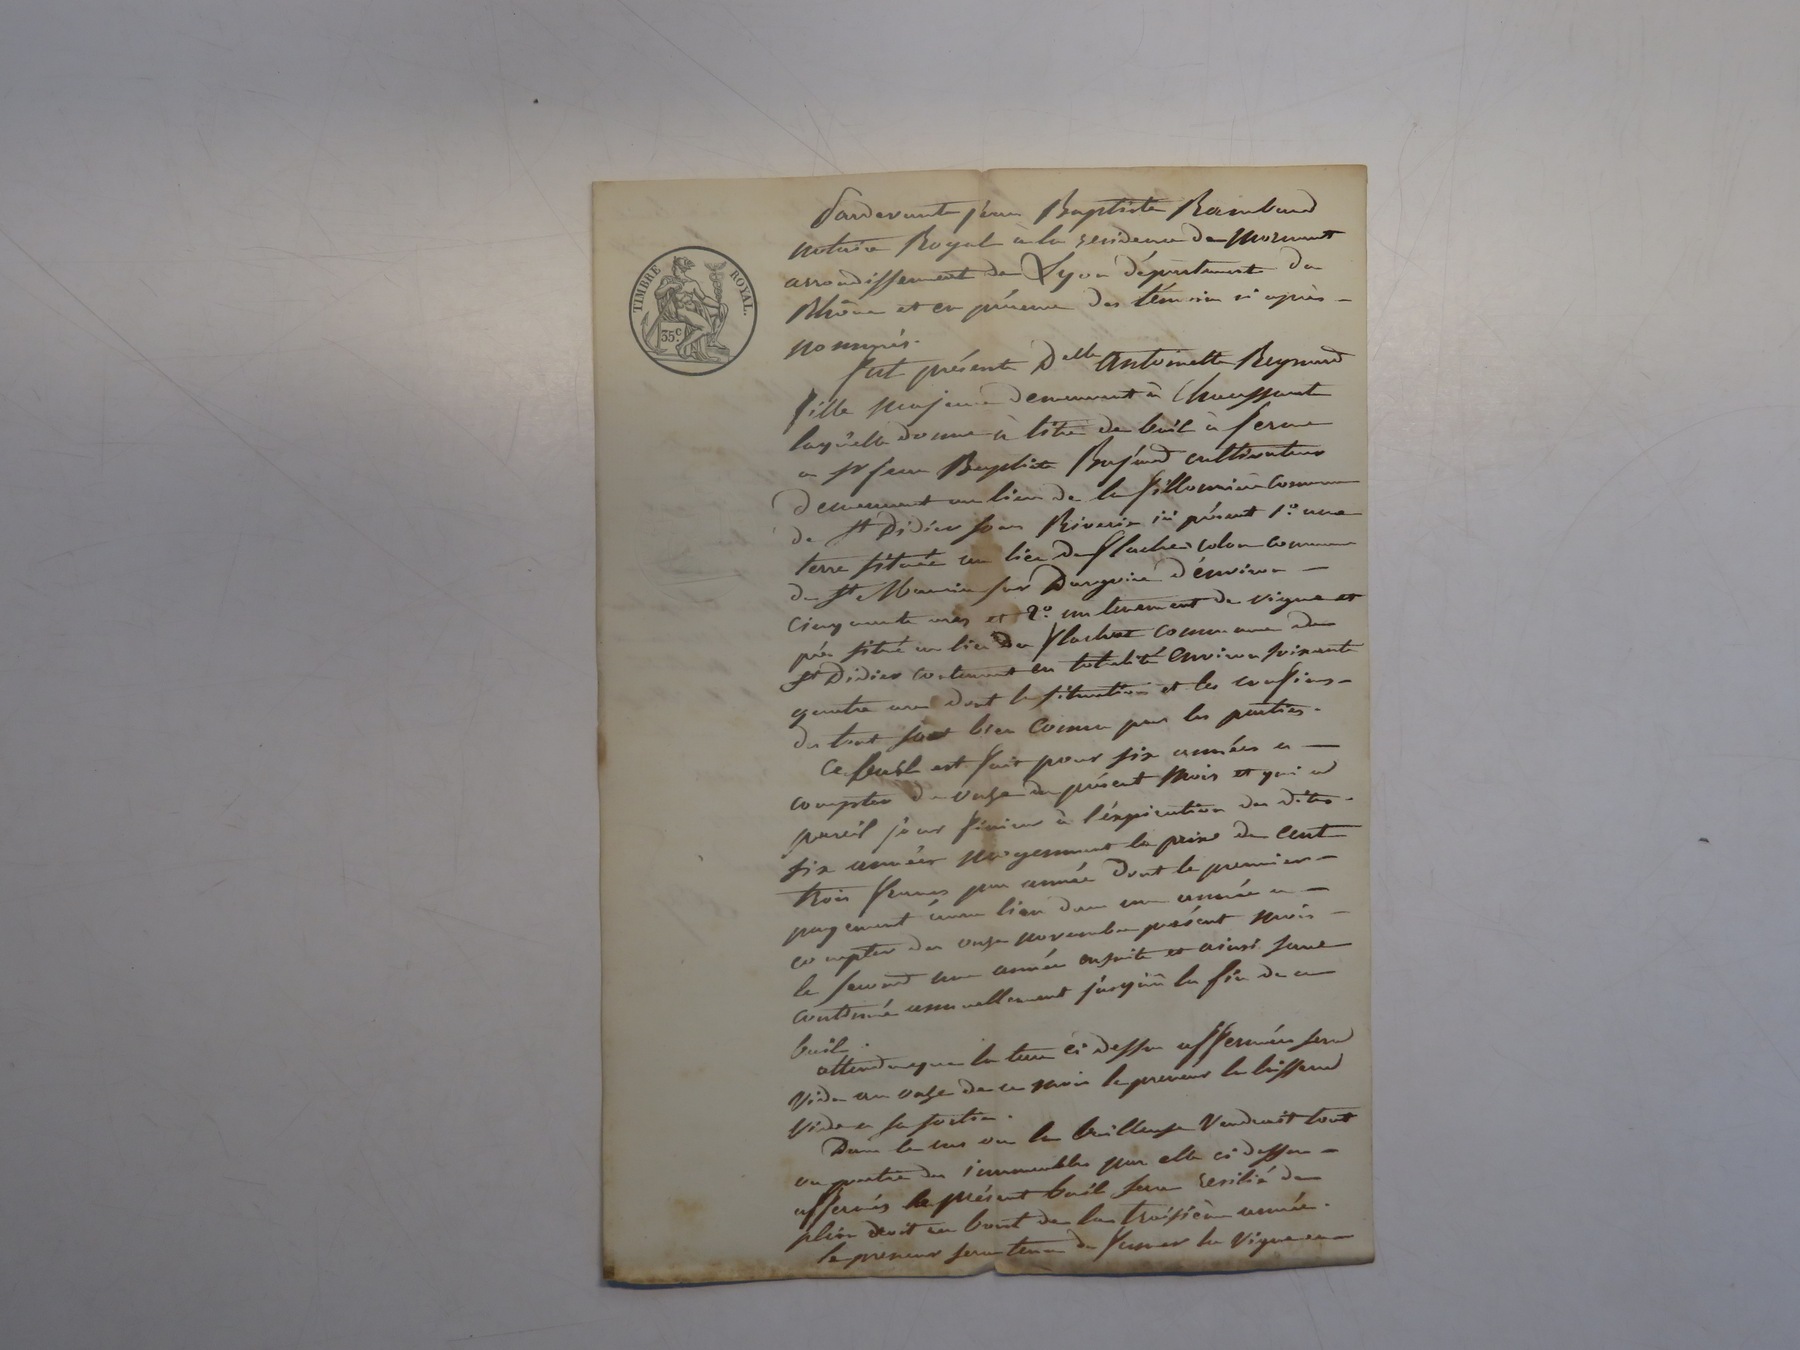 TIMBRE ROYAL.
35 c
Pardevant jean Baptiste Rambaud
notaire Royal à la residence de Mornant
arrondissement de Lyon département du
Rhône et en présence des témoins ci après
nommés.
fut présente Delle Antoinette Reynard
fille majeure demeurant à Chaussant
laquelle donne à titre de bail à ferme
a Sr jean Baptiste cultivateur
demeurant au lieu de la commune
de St Didier sous Riverie ici présent 1o. une
terre située au lieu de commune
de St Maurice sur Dargoire d'environ
cinquante ares et 2o. un tenement de vigne et
pré situé au lieu de commune de
St Didier contenant en totalité environ soixante
quatre ares dont la situation et les confins
du tout sont bien connu par les parties.
Ce bail est fait pour six années a
compter du onze du présent mois et qui a
pareil jour finira à l'éxpiration des dites
six années moyennant le prix de cent
trois francs par année dont le premier
payement aura lieu dans une année a
compter du onze novembre présent mois
le second une année ensuite et ainsi sera
continué annuellement jusqu'à la fin de ce
bail.
attendu que la terre ci dessu affermée sera
vide au onze de ce mois le preneur la laissera
vide a sa sortie.
Dans le cas ou la bailleuse vendrait tout
ou partie des immeubles par elle ci dessu
affermés le présent bail sera resilié de
plein droit au bout de la troisième année.
le preneur sera tenu de fumer la vigne